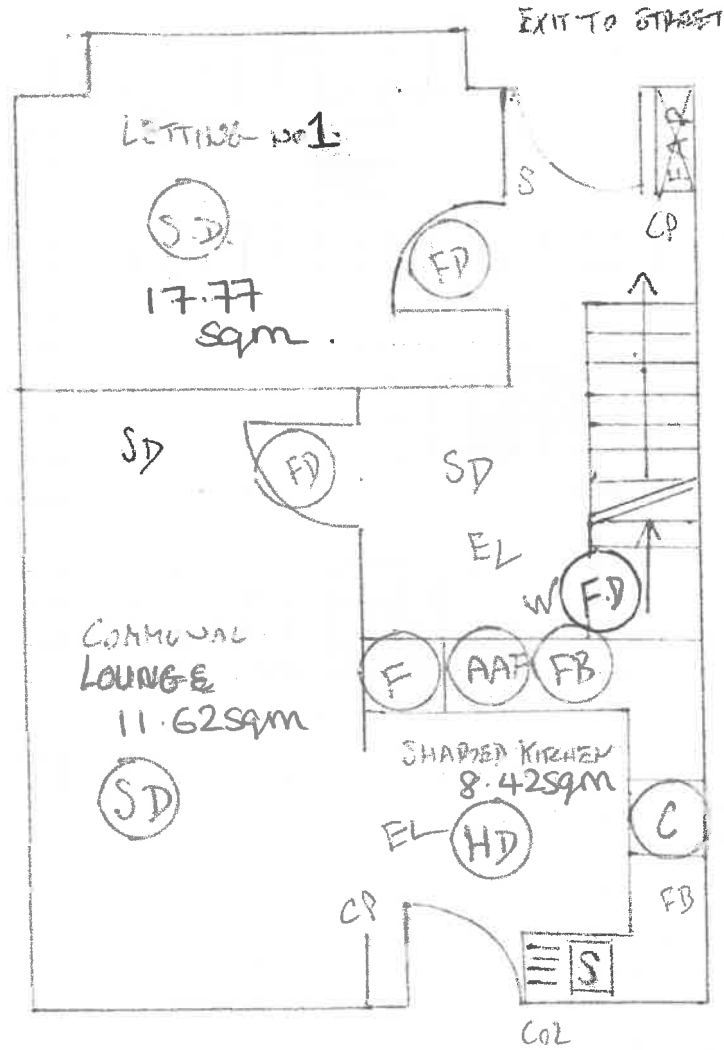 EXIT TO STREET
LETTING NO 1.
SD
17.77
sqm.
S
FD
FAP
CP
SD
FD
SD
EL
W
F.D
COMMUNAL
LOUNGE
11.62sqm
F
AAF
FB
SHARED KITCHEN
8.42sqm
SD
EL
HD
C
CP
FB
S
CO2